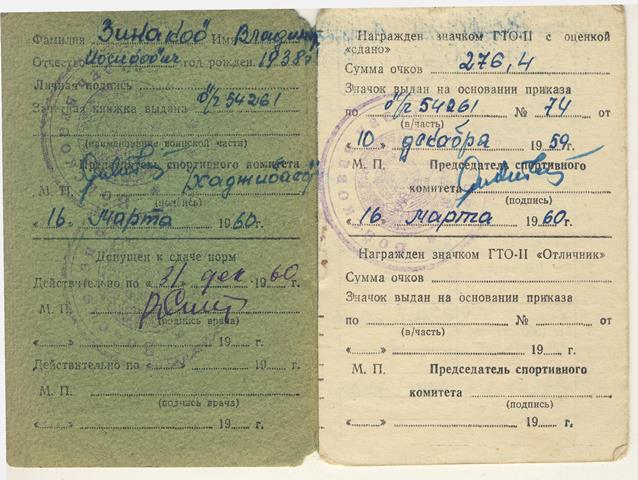 Фамилия Зинаков Имя Владимир
Отчество Иосифович год рожден. 1938г
Личная подпись
Зачетная книжка выдана в/ч 54261
(наименование воинской части)
Председатель спортивного комитета
М. П. Хаджибаев
(подпись)
«16» марта 1960 г.
Допущен к сдаче норм
Действительно по «31» дек 1960 г.
М. П.
(подпись врача)
«......» 19 г.
Действительно по «......» 19 г.
М. П.
(подпись врача)
«......» 19 г.
Награжден значком ГТО-II с оценкой
«сдано»
Сумма очков 276,4
Значок выдан на основании приказа
по в/ч 54261 № 74 от
(в/часть)
«10» декабря 1959 г.
М. П. Председатель спортивного
комитета
(подпись)
«16» марта 1960 г.
Награжден значком ГТО-II «Отличник»
Сумма очков
Значок выдан на основании приказа
по № от
(в/часть)
«......» 19 г.
М. П. Председатель спортивного
комитета
(подпись)
«......» 19 г.